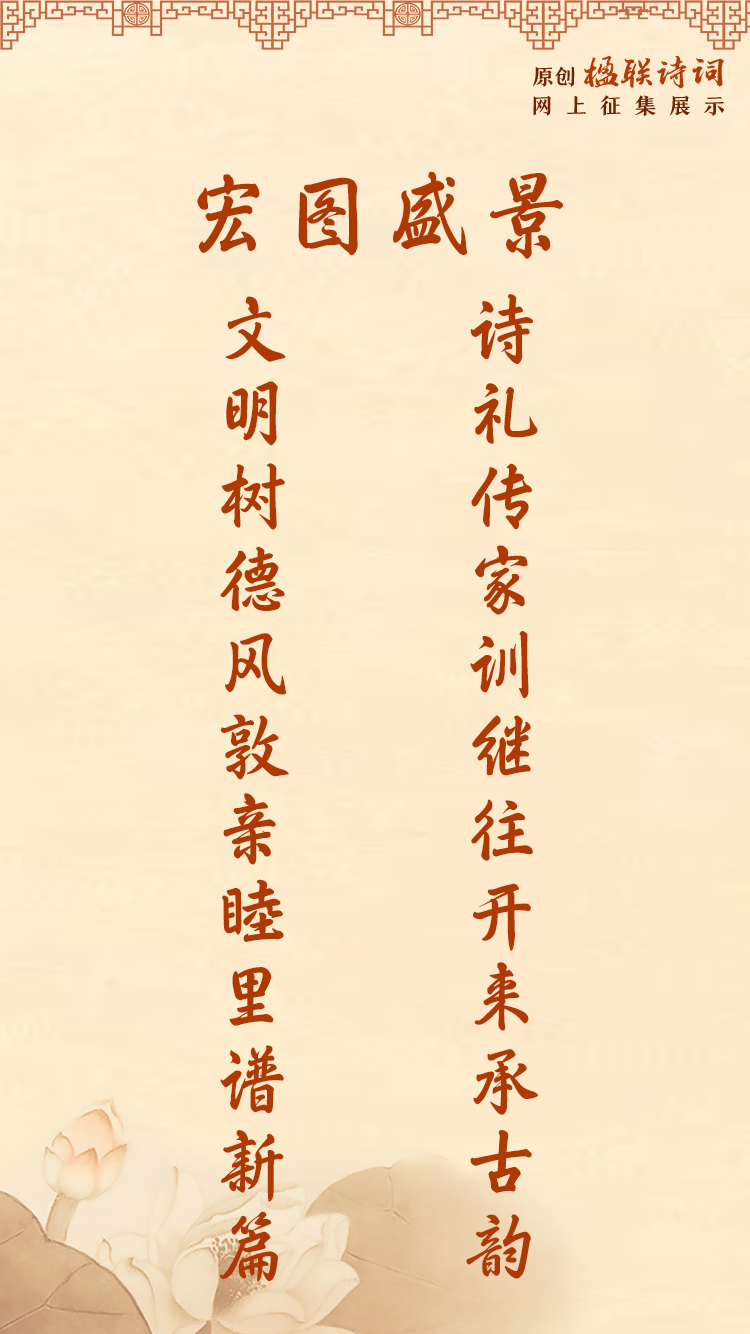 原创 楹联诗词
网上征集展示
宏图盛景
诗礼传家训继往开来承古韵
文明树德风敦亲睦里谱新篇